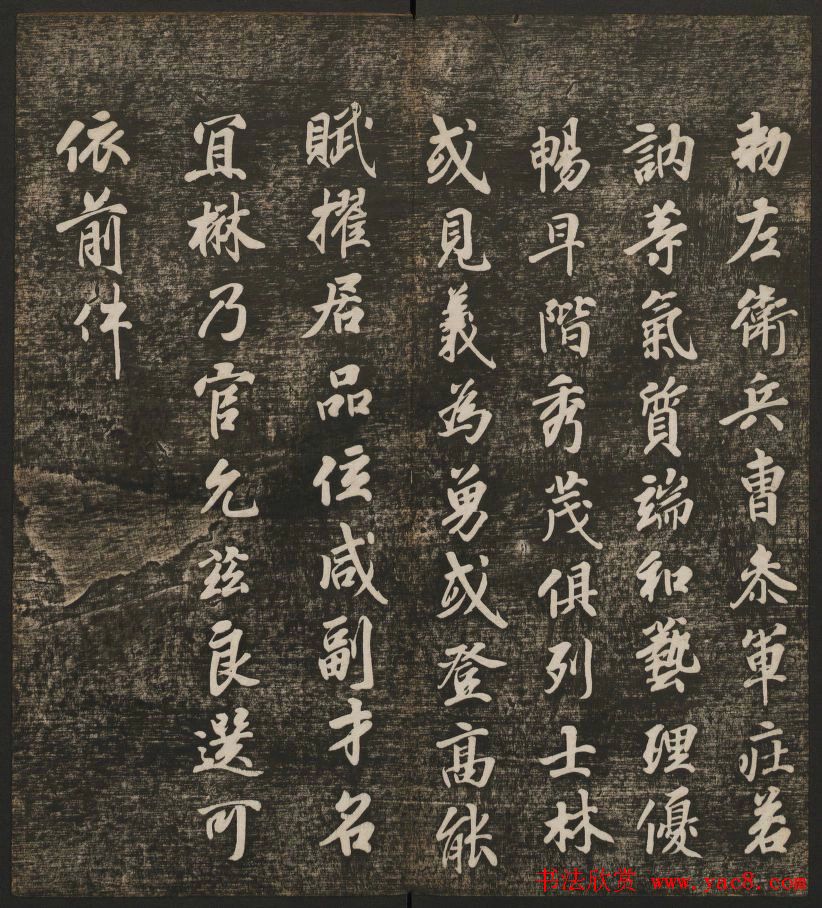 勅左衛兵曹叅軍莊若
訥等氣質端和藝理優
暢早階秀茂俱列士林
或見義為勇或登高能
賦擢居品位咸副才名
宜楙乃官允茲良選可
依前件
书法欣赏 www.yac8.com